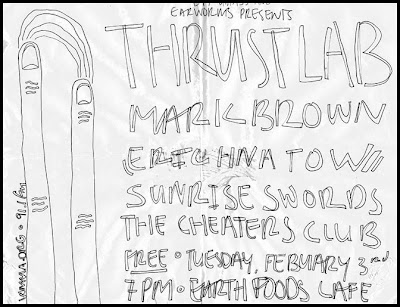 EARWORMS PRESENTS
THRUST LAB
MARK BROWN
ERIC HNATOW
SUNRISE SWORDS
THE CHEATERS CLUB
FREE • TUESDAY, FEBUARY 3rd
7 PM • EARTH FOODS CAFE
WMUA.ORG • 91.1 fm